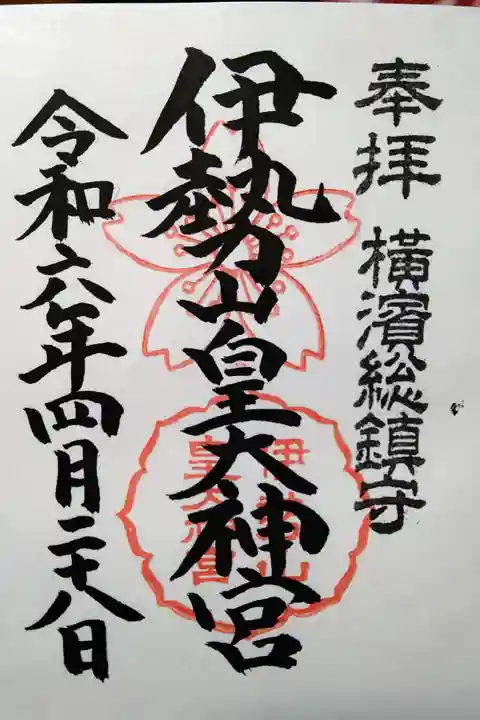 奉拝 横濱総鎮守
伊勢山皇大神宮
伊勢山
皇大神宮
令和六年四月二十八日